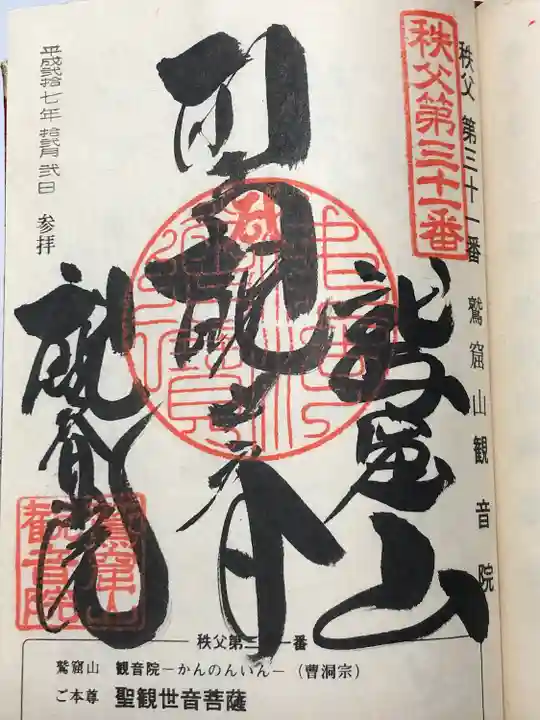 秩父第三十一番
秩父 第三十一番 鷲窟山観音院
鷲窟山
聖観世音
観音院
平成弐拾七年 拾弐月 弐日 参拝
鷲窟山
観音院
秩父第三十一番
鷲窟山 観音院ーかんのんいんー（曹洞宗）
ご本尊 聖観世音菩薩